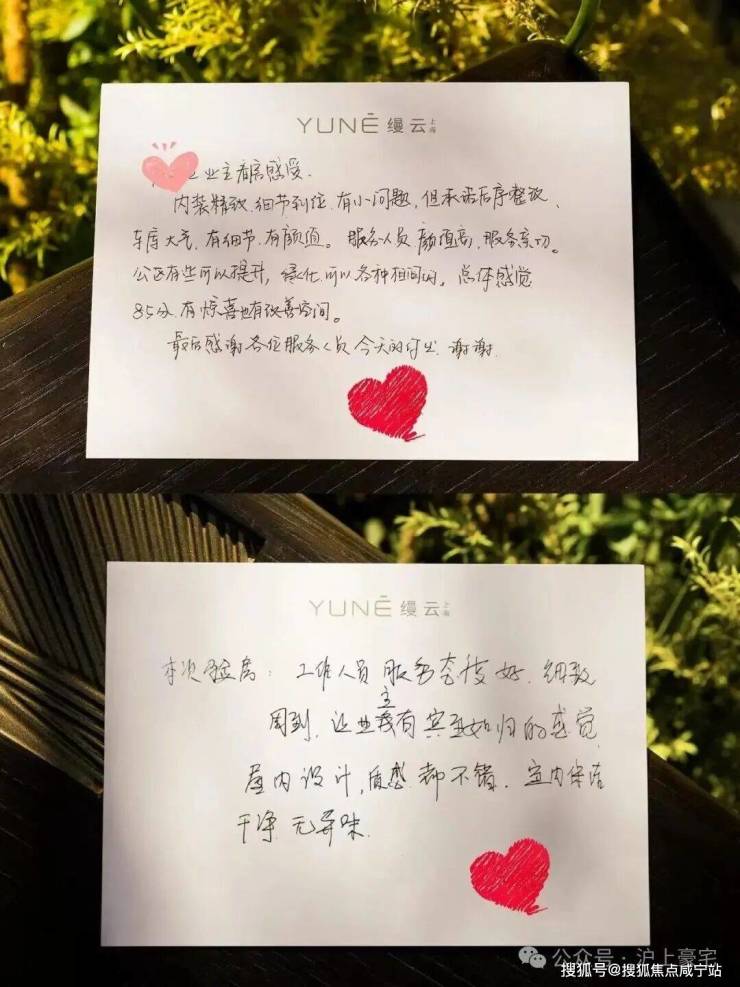 YUNĒ 缦云上海
业主看房感受.
内装精致.细节到位.有小问题,但承诺后序整改、
车库大气.有细节.有颜值。服务人员颜值高,服务亲切。
公区有些可以提升,绿化可以各种相间的。总体感觉
85分.有惊喜也有改善空间。
最后感谢各位服务人员今天的付出.谢谢.
YUNĒ 缦云上海
本次验房:工作人员服务态度好.细致
周到,让业主有宾至如归的感觉
屋内设计,质感都不错.室内保洁
干净 无异味.
公众号·沪上豪宅
搜狐号@搜狐焦点咸宁站